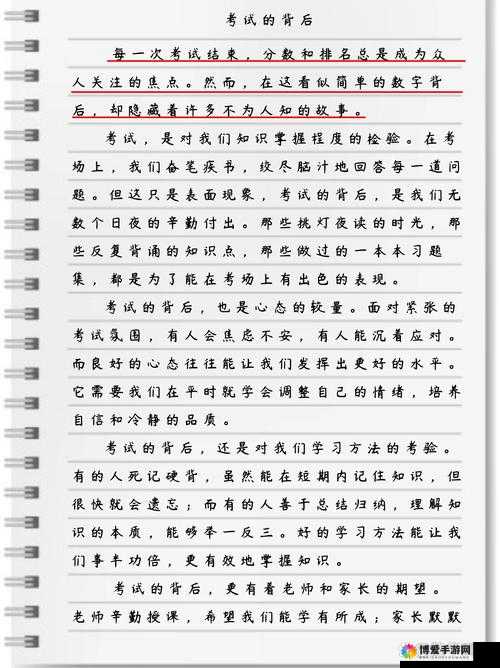 考试的背后
每一次考试结束，分数和排名总是成为众
人关注的焦点。然而，在这看似简单的数字背
后，却隐藏着许多不为人知的故事。
考试，是对我们知识掌握程度的检验。在考
场上，我们奋笔疾书，绞尽脑汁地回答每一道问
题。但这只是表面现象，考试的背后，是我们无
数个日夜的辛勤付出。那些挑灯夜读的时光，那
些反复背诵的知识点，那些做过的一本本习题
集，都是为了能在考场上有出色的表现。
考试的背后，也是心态的较量。面对紧张的
考试氛围，有人会焦虑不安，有人能沉着应对。
而良好的心态往往能让我们发挥出更好的水平。
它需要我们在平时就学会调整自己的情绪，培养
自信和冷静的品质。
考试的背后，还是对我们学习方法的考验。
有的人死记硬背，虽然能在短期内记住知识，但
很快就会遗忘；而有的人善于总结归纳，理解知
识的本质，能够举一反三。好的学习方法能让我
们事半功倍，更有效地掌握知识。
考试的背后，更有着老师和家长的期望。
老师辛勤授课，希望我们能学有所成；家长默默
博爱手游网